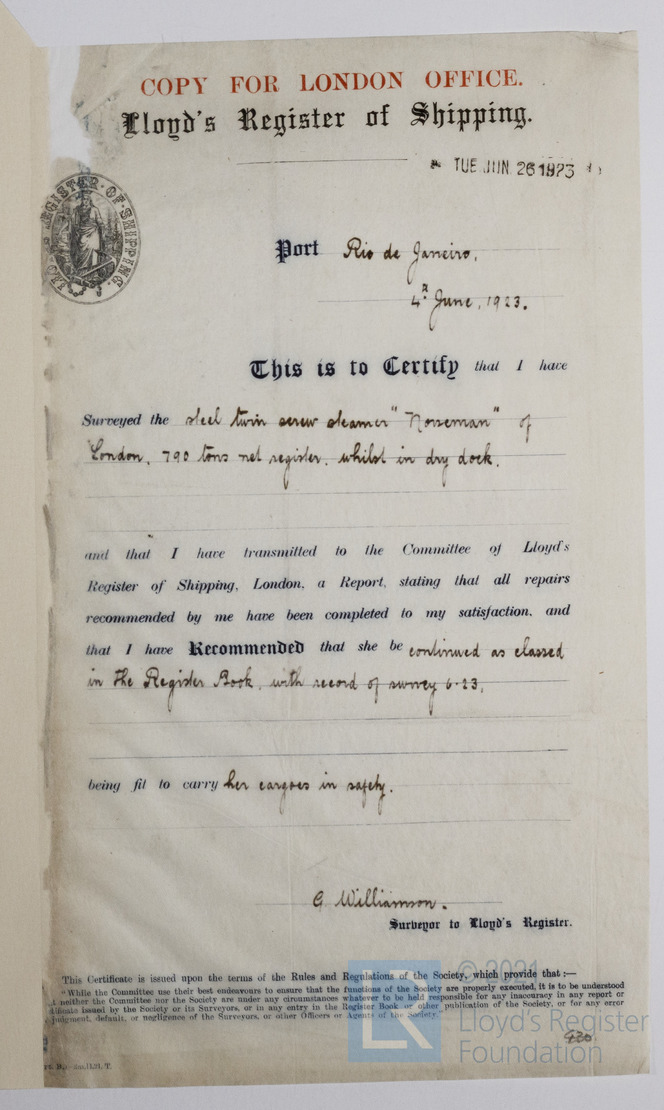 COPY FOR LONDON OFFICE.
Lloyd's Register of Shipping.
TUE JUN 26 1923
LLOYD'S REGISTER OF SHIPPING.
Port Rio de Janeiro,
4th June, 1923.
This is to Certify that I have
Surveyed the steel twin screw steamer "Norseman" of
London, 790 tons net register, whilst in dry dock,
and that I have transmitted to the Committee of Lloyd's
Register of Shipping, London, a Report, stating that all repairs
recommended by me have been completed to my satisfaction, and
that I have Recommended that she be continued as classed
in the Register Book, with record of survey 6·23,
being fit to carry her cargoes in safety.
G Williamson.
Surveyor to Lloyd's Register.
This Certificate is issued upon the terms of the Rules and Regulations of the Society, which provide that :—
"While the Committee use their best endeavours to ensure that the functions of the Society are properly executed, it is to be understood
neither the Committee nor the Society are under any circumstances whatever to be held responsible for any inaccuracy in any report or
issued by the Society or its Surveyors, or in any entry in the Register Book or other publication of the Society, or for any error
judgment, default, or negligence of the Surveyors, or other Officers or Agents of the Society."
© 2021
Lloyd's Register
Foundation